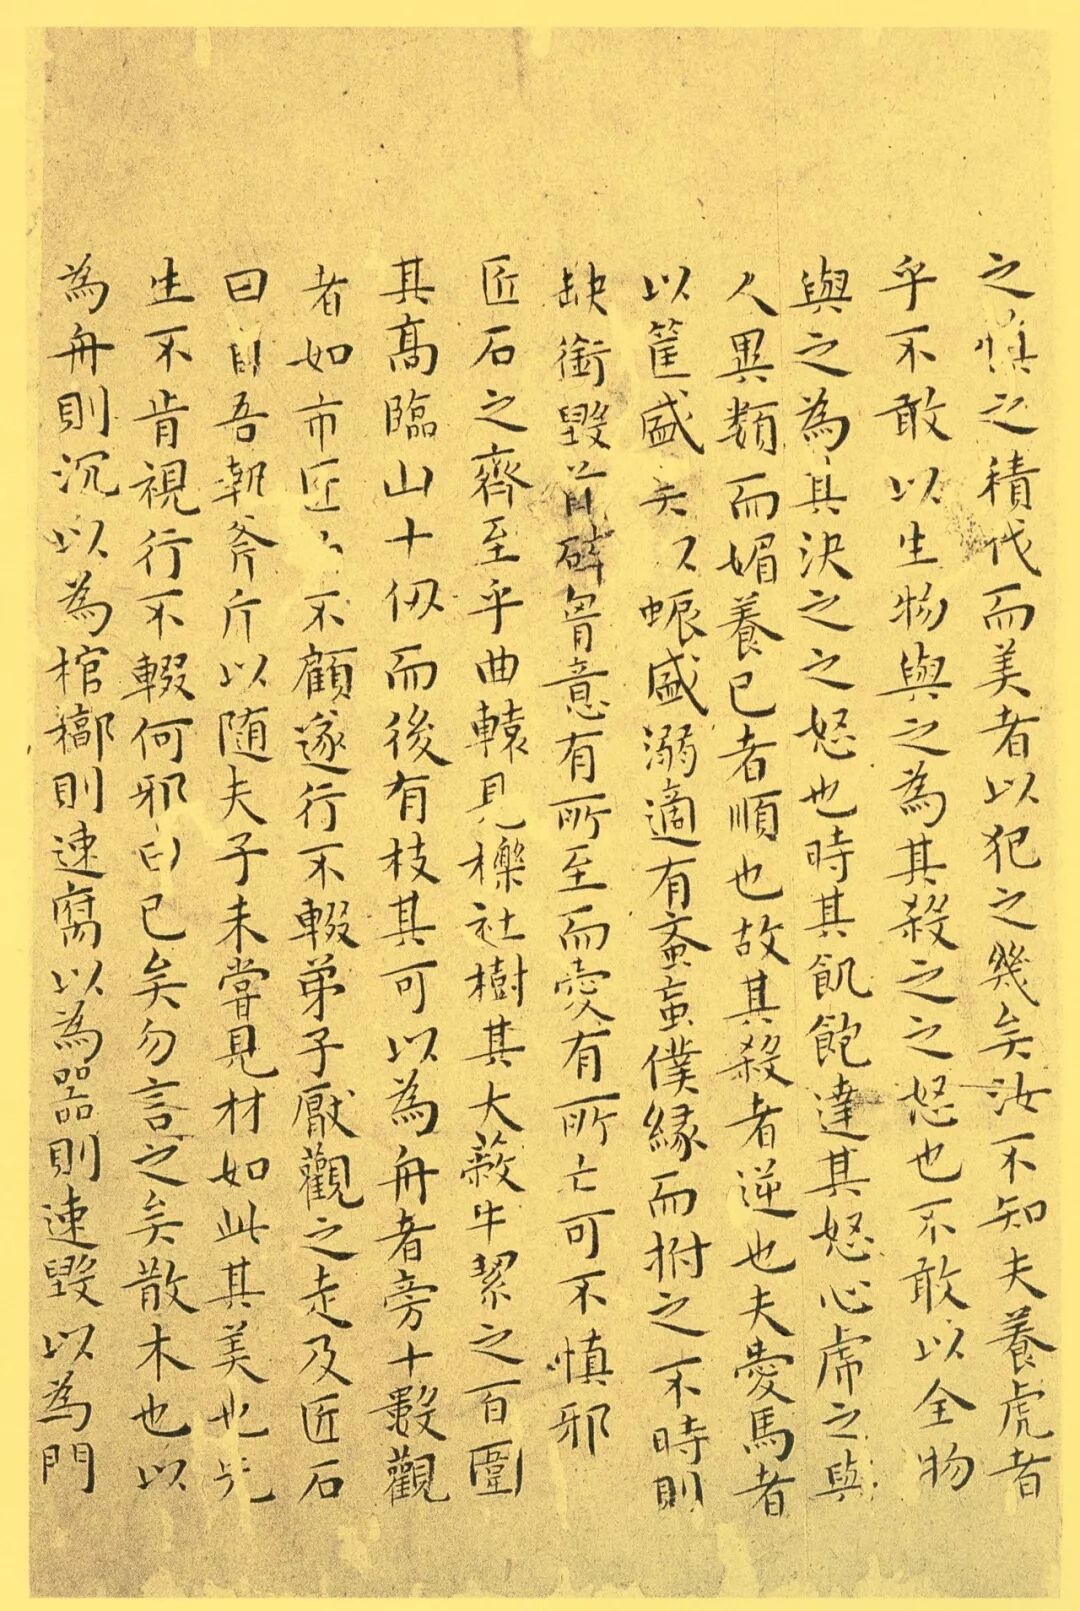 之慎之積伐而美者以犯之幾矣汝不知夫養虎者
乎不敢以生物與之為其殺之之怒也不敢以全物
與之為其決之之怒也時其飢飽達其怒心虎之與
人異類而媚養已者順也故其殺者逆也夫愛馬者
以筐盛矢以蜄盛溺適有蚉䖟僕緣而拊之不時則
缺銜毀首碎胷意有所至而愛有所亡可不慎邪
匠石之齊至乎曲轅見櫟社樹其大蔽牛絜之百圍
其高臨山十仭而後有枝其可以為舟者旁十數觀
者如市匠〻不顧遂行不輟弟子厭觀之走及匠石
曰自吾執斧斤以隨夫子未嘗見材如此其美也先
生不肯視行不輟何邪曰已矣勿言之矣散木也以
為舟則沉以為棺槨則速腐以為器則速毀以為門